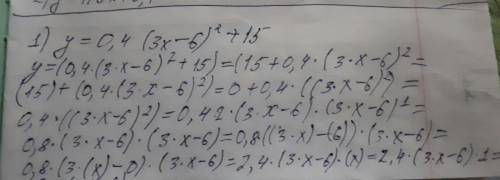 1) y = 0,4 (3x-6)² + 15
y=(0,4·(3·x-6)²+15)=(15+0,4·(3·x-6)²=
(15)+(0,4·(3·x-6)²)=0+0,4·((3·x-6)²)=
0,4·((3·x-6)²)=0,4·2·(3·x-6)·(3·x-6)¹=
0,8·(3·x-6)·(3·x-6)=0,8((3·x)-(6))·(3·x-6)=
0,8·(3·(x)-0)·(3·x-6)=2,4·(3·x-6)·(x)=2,4·(3·x-6)·1=